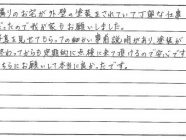 隣りのお宅が外壁の塗装をされていて丁寧な仕事
だったので我が家もお願いしました。
写真を見せてもらっての細かい事前説明があり、塗装が
終わってからも定期的に点検に来て頂けるので安心です。
こちらにお願いして本当に良かったです。